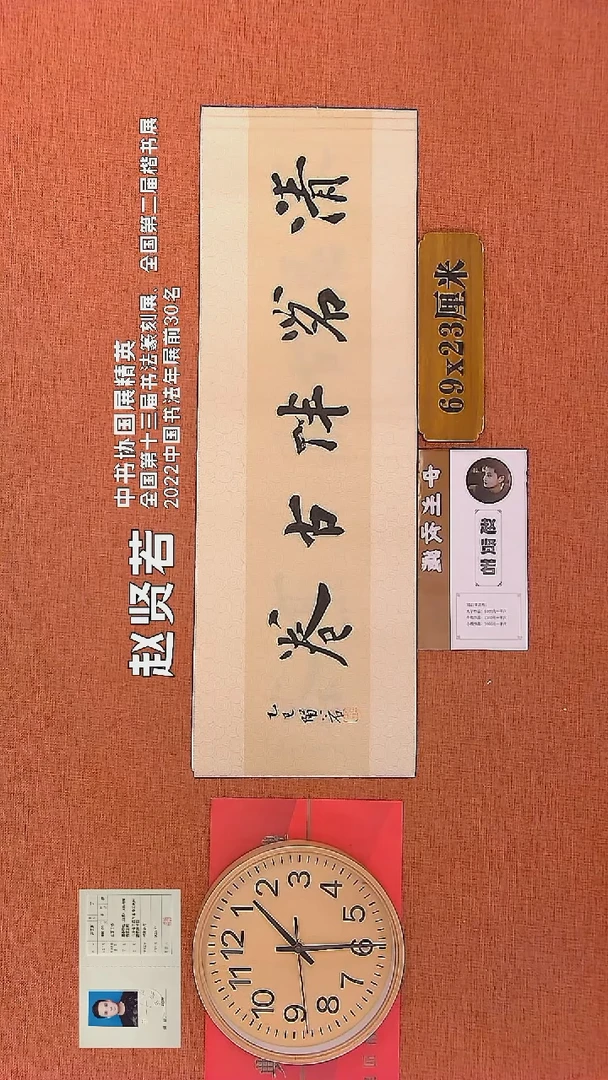 赵贤若
中书协国展精英
全国第十三届书法篆刻展、全国第二届楷书展
2022中国书法年展前30名
清茗伴古卷
69x23厘米
12
1
2
3
4
5
6
7
8
9
10
11